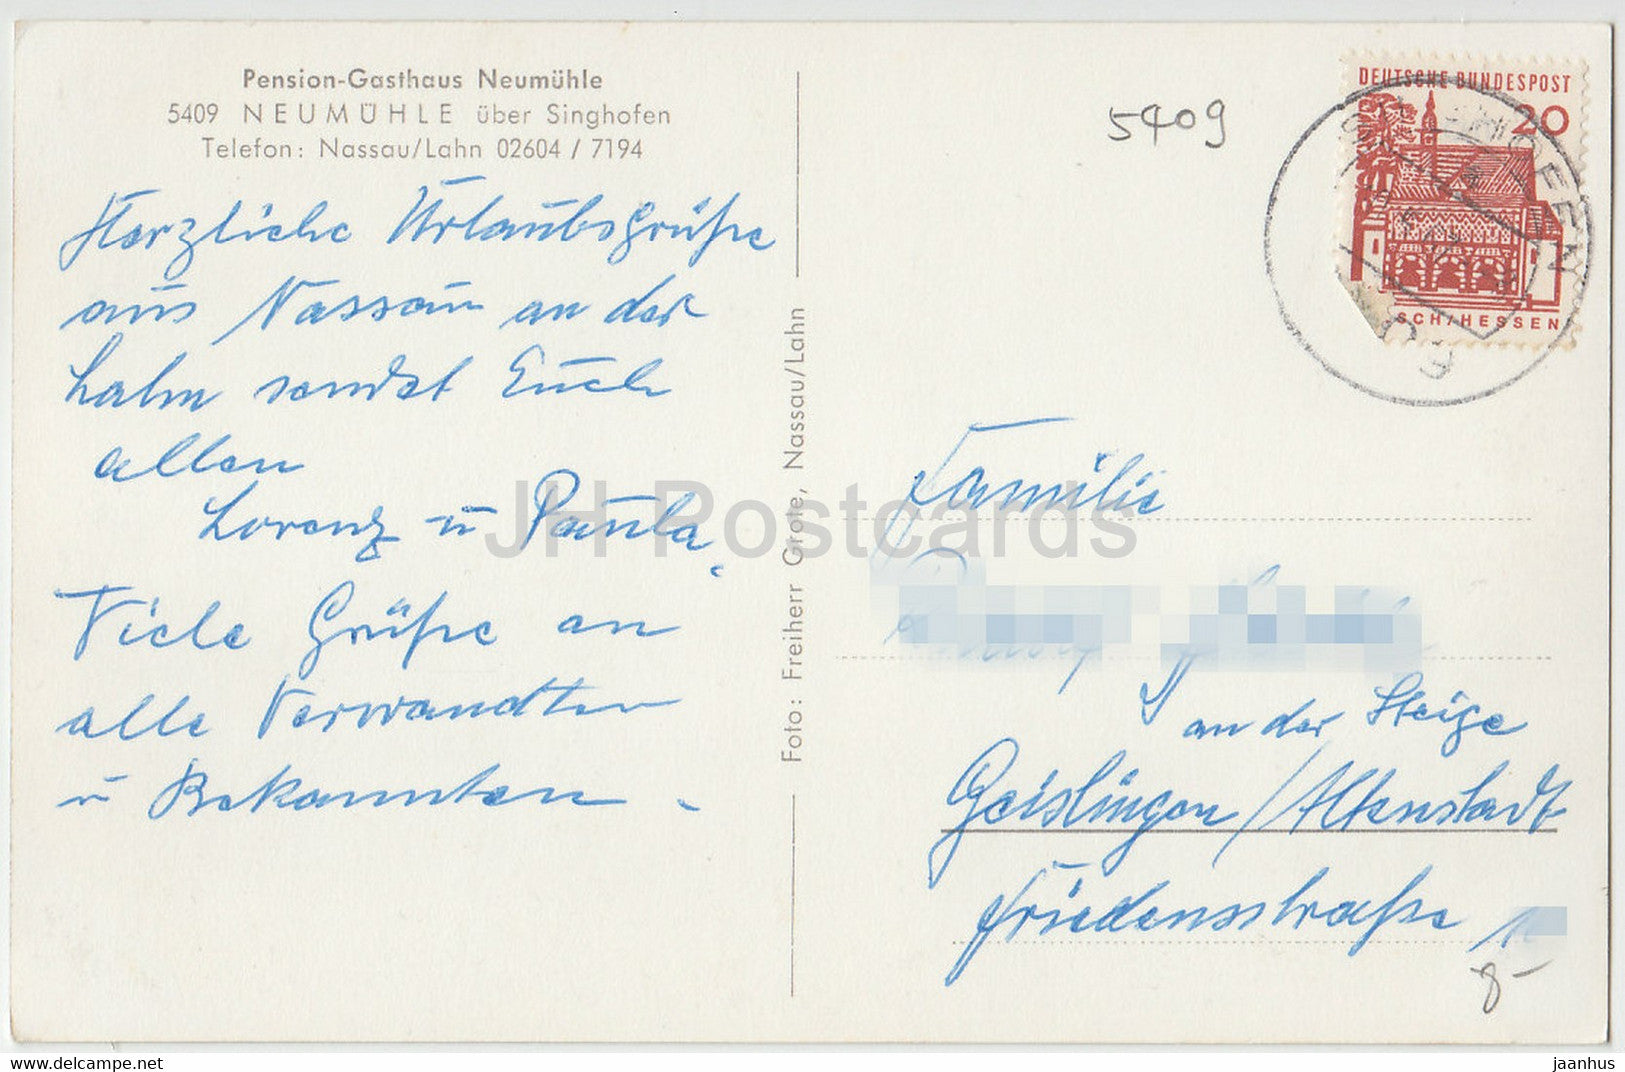 Pension-Gasthaus Neumühle
5409 NEUMÜHLE über Singhofen
Telefon: Nassau/Lahn 02604 / 7194
Herzliche Urlaubsgrüße
aus Nassau an der
Lahn sendet Euch
allen
Lorenz u Paula.
Viele Grüße an
alle Verwandten
u Bekannten
Foto: Freiherr Grote, Nassau/Lahn
5409
DEUTSCHE BUNDESPOST
20
SCH/HESSEN
Familie
an der Steige
Geislingen/Altenstadt
Friedensstraße
8-
JH Postcards
www.delcampe.net
jaanhus